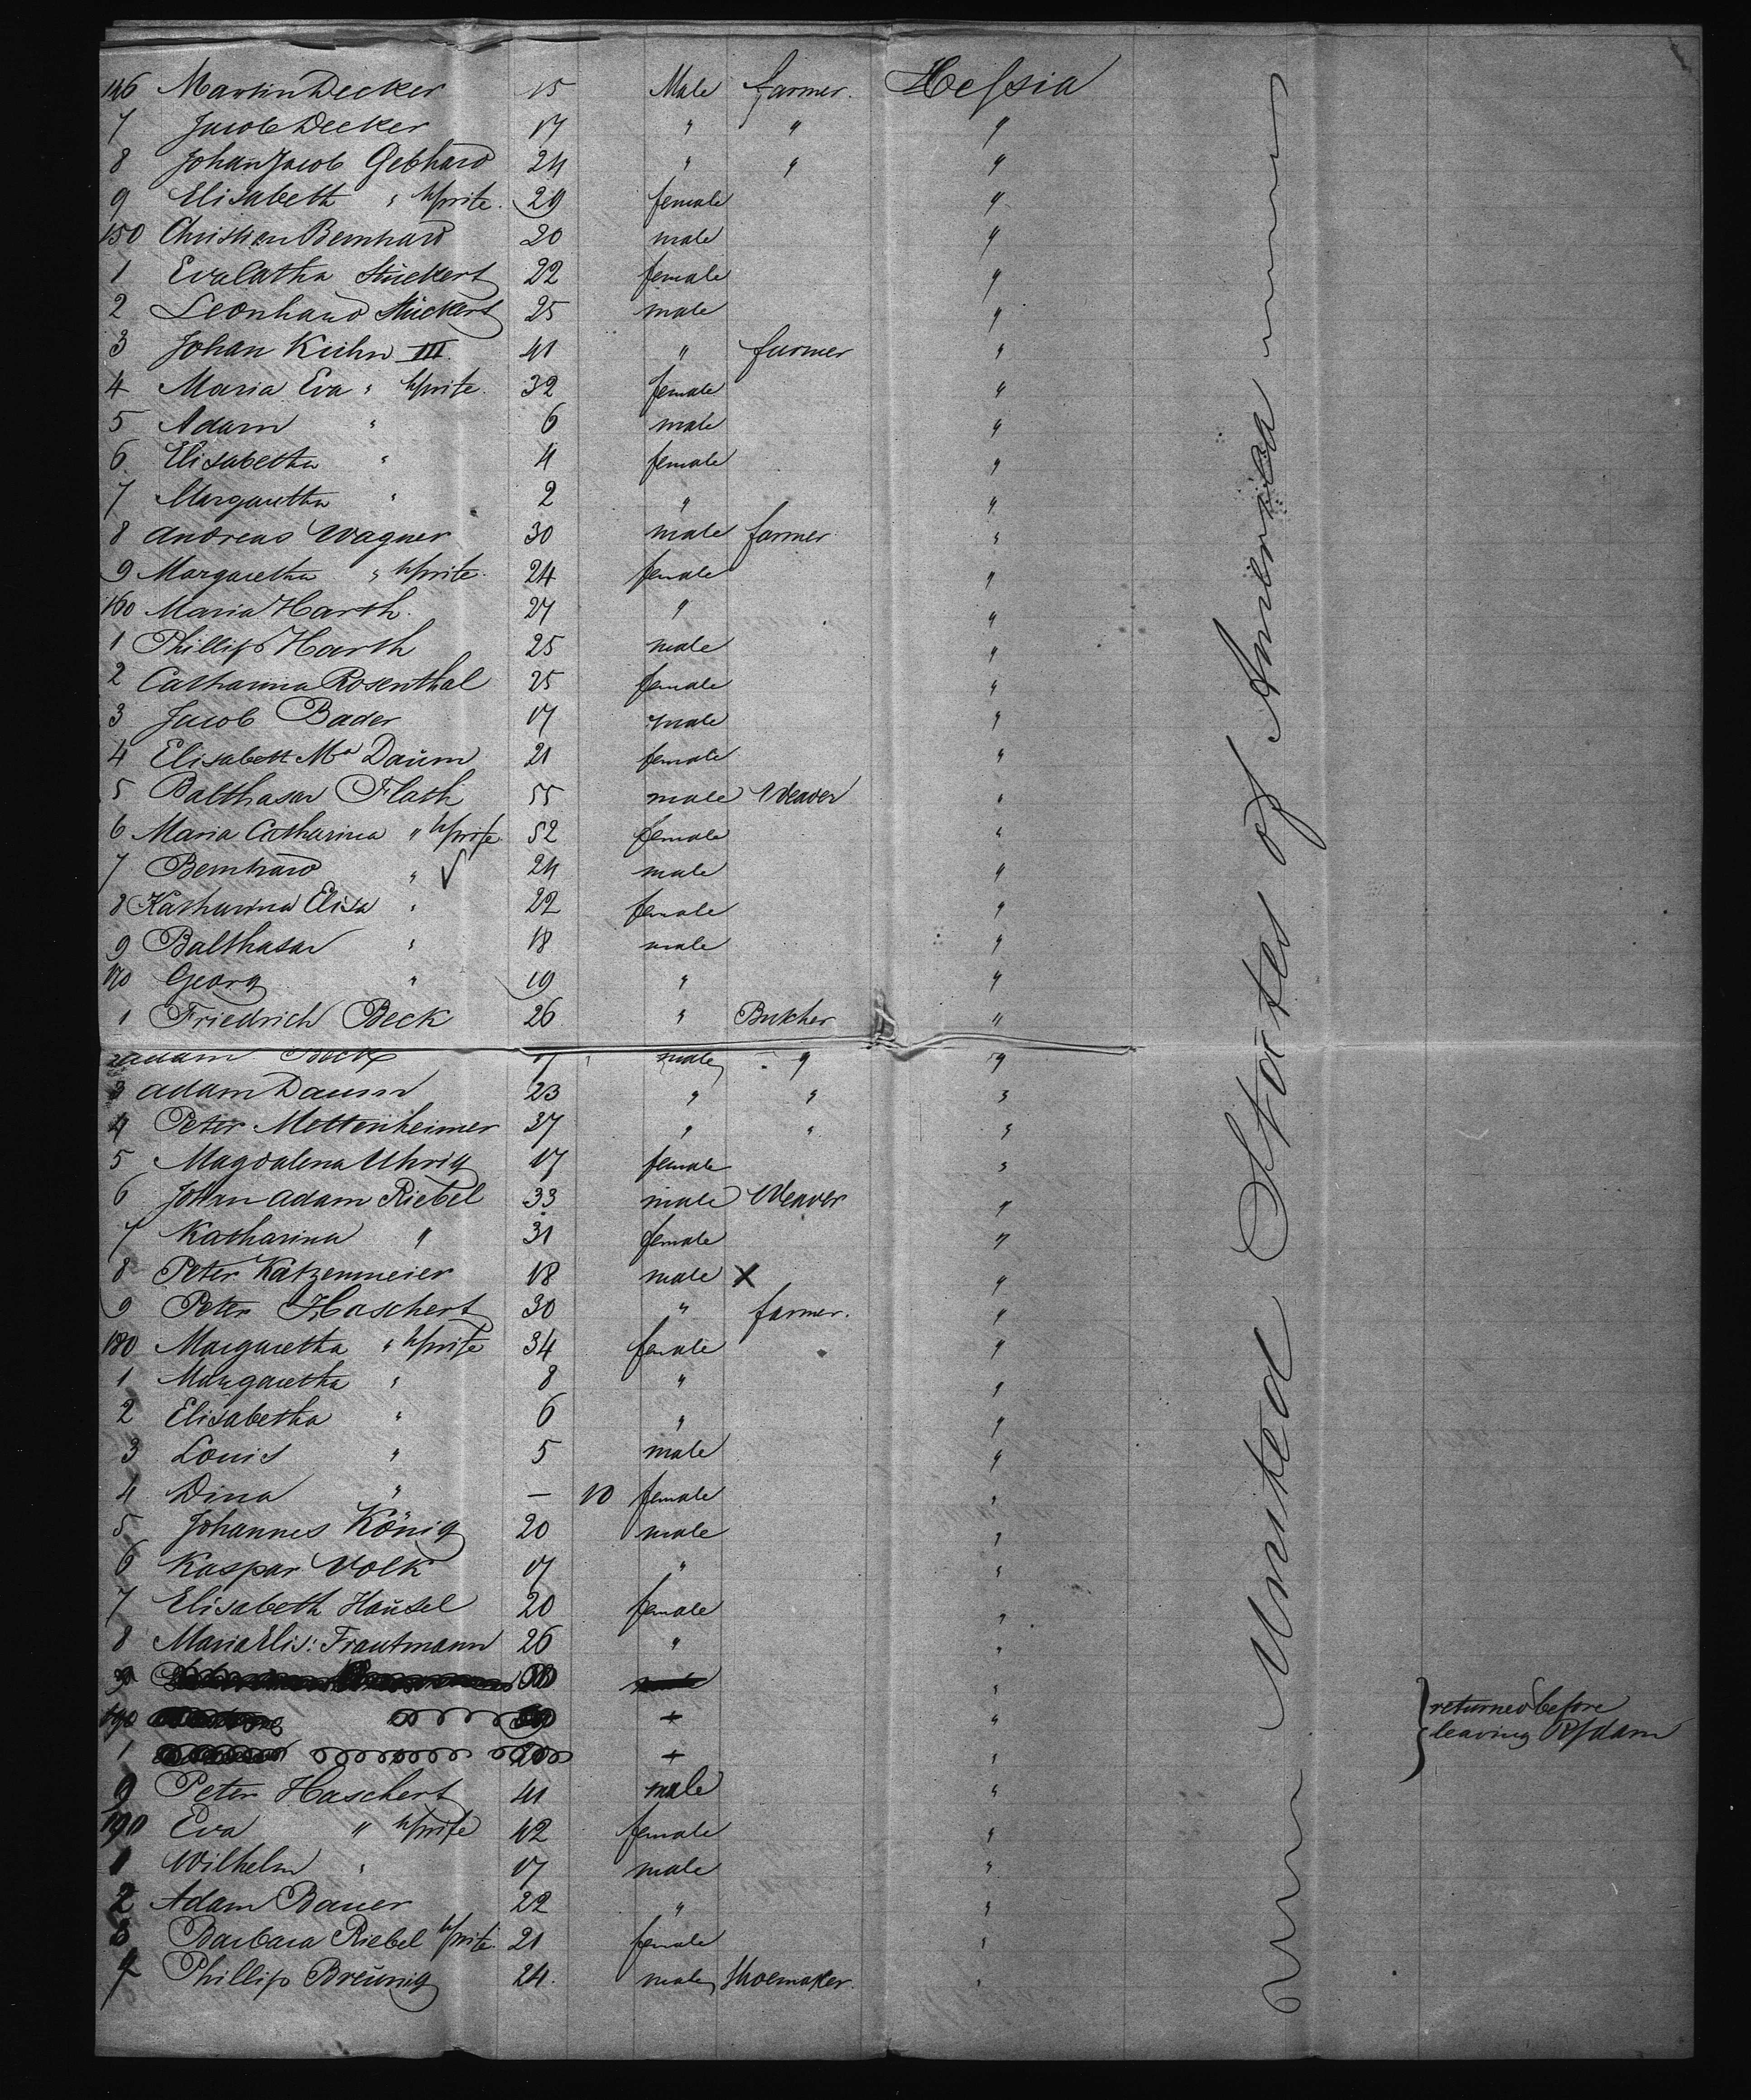 146 Martin Decker 15 Male farmer. Hessia
7 Jacob Decker 17 " " "
8 Johan Jacob Gebhard 24 " " "
9 Elisabeth " h/wife. 29 female "
150 Christian Bernhard 20 male "
1 Eva Catha Stückert 22 female "
2 Leonhard Stückert 25 male "
3 Johan Kühn III. 41 " farmer "
4 Maria Eva " h/wife. 32 female "
5 Adam " 6 male "
6 Elisabetha " 4 female "
7 Margaretha " 2 " "
8 Andreas Wagner 30 male farmer "
9 Margaretha " h/wife. 24 female "
160 Maria Harth. 27 " "
1 Phillip Harth 25 male "
2 Catharina Rosenthal 25 female "
3 Jacob Bader 17 male "
4 Elisabett Ma Daum 21 female "
5 Balthasar Flath 55 male Weaver "
6 Maria Catharina " h/wife 52 female "
7 Bernhard " √ 24 male "
8 Katharina Elisa " 22 female "
9 Balthasar " 18 male "
170 Georg " 19 " "
1 Friedrich Beck 26 " Butcher "
2 Adam 17 male " "
3 Adam Daum 23 " " "
4 Peter Mottenheimer 37 " " "
5 Magdalena Uhrig 17 female "
6 Johan Adam Riebel 33 male Weaver "
7 Katharina " 31 female "
8 Peter Katzenmeier 18 male X "
9 Peter Haschert 30 " farmer. "
180 Margaretha " h/wife 34 female "
1 Margaretha " 8 " "
2 Elisabetha " 6 " "
3 Louis " 5 male "
4 Dina " — 10 female "
5 Johannes König 20 male "
6 Kaspar Volk 17 " "
7 Elisabeth Haüsel 20 female "
8 Maria Elis: Trautmann 26 " "
9 "
190 + "
1 20 + "
returned before
leaving R/dam
9 Peter Haschert 41 male "
190 Eva " h/wife 42 female "
1 Wilhelm " 17 male "
2 Adam Bauer 22 " "
3 Barbara Riebel h/wife. 21 female "
4 Phillip Breünig 24. male Shoemaker. "
United States of America